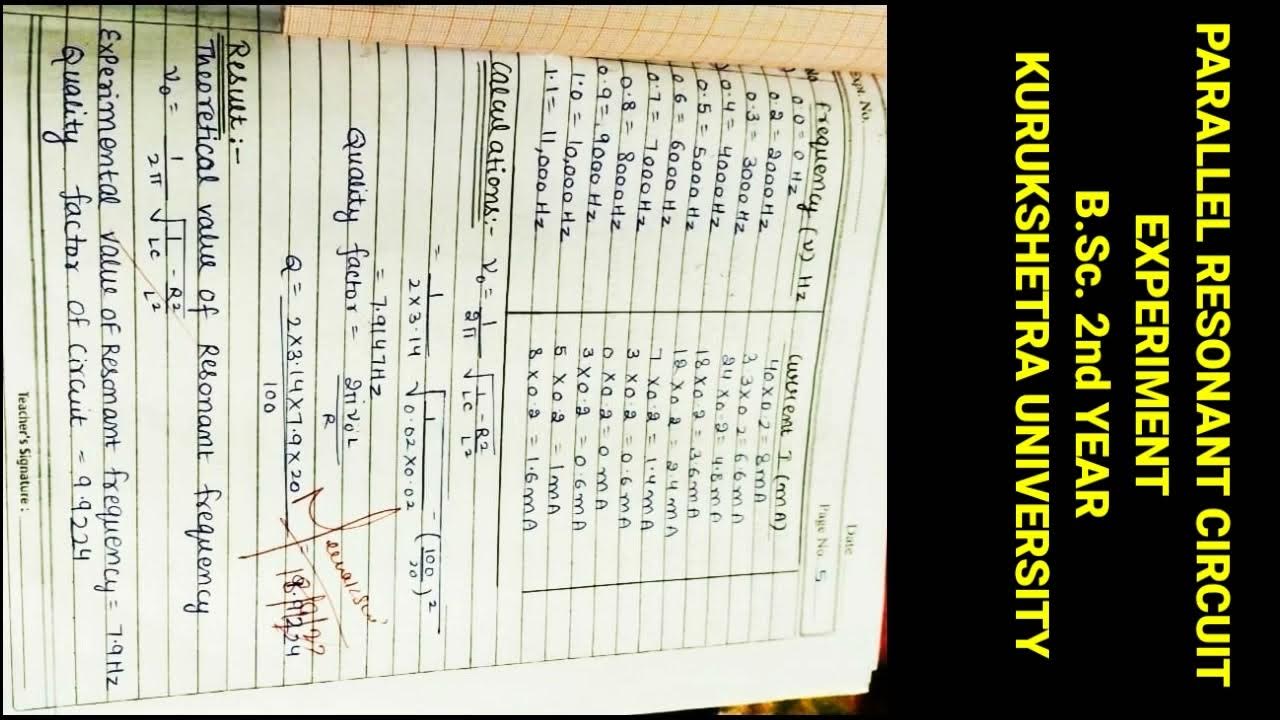 PARALLEL RESONANT CIRCUIT
EXPERIMENT
B.Sc. 2nd YEAR
KURUKSHETRA UNIVERSITY
Expt. No.
Date
Page No. 5
No frequency (ν) Hz Current I (mA)
0.0 = 0 Hz 40 × 0.2 = 8 mA
0.2 = 2000 Hz 33 × 0.2 = 6.6 mA
0.3 = 3000 Hz 24 × 0.2 = 4.8 mA
0.4 = 4000 Hz 18 × 0.2 = 3.6 mA
0.5 = 5000 Hz 12 × 0.2 = 2.4 mA
0.6 = 6000 Hz 7 × 0.2 = 1.4 mA
0.7 = 7000 Hz 3 × 0.2 = 0.6 mA
0.8 = 8000 Hz 0 × 0.2 = 0 mA
0.9 = 9000 Hz 3 × 0.2 = 0.6 mA
1.0 = 10,000 Hz 5 × 0.2 = 1 mA
1.1 = 11,000 Hz 8 × 0.2 = 1.6 mA
Calculations:- ν₀ = 1/2π √(1/LC - R²/L²)
= 1/(2 × 3.14) √(1/(0.02 × 0.02) - (100/20)²)
= 7.9147 Hz
Quality factor = 2πν₀L/R
Q = 2×3.14×7.9×20/100
Result:-
Theoretical value of Resonant frequency
ν₀ = 1/2π √(1/LC - R²/L²)
Experimental value of Resonant frequency = 7.9 Hz
Quality factor of Circuit = 9.9224
Teacher's Signature :